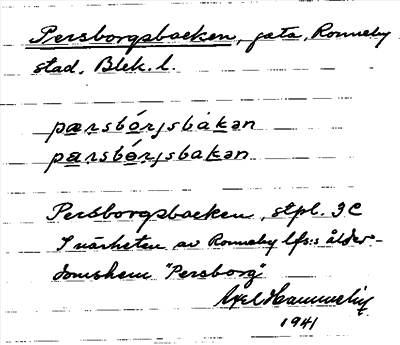 Persborgsbacken, gata, Ronneby
stad, Blek. l.
pærsbórjsbàkən
pærsbórjsbakən
Persborgsbacken, stpl. 3C
I närheten av Ronneby lfs:s ålder-
domshem "Persborg"
Axel Hammelin
1941